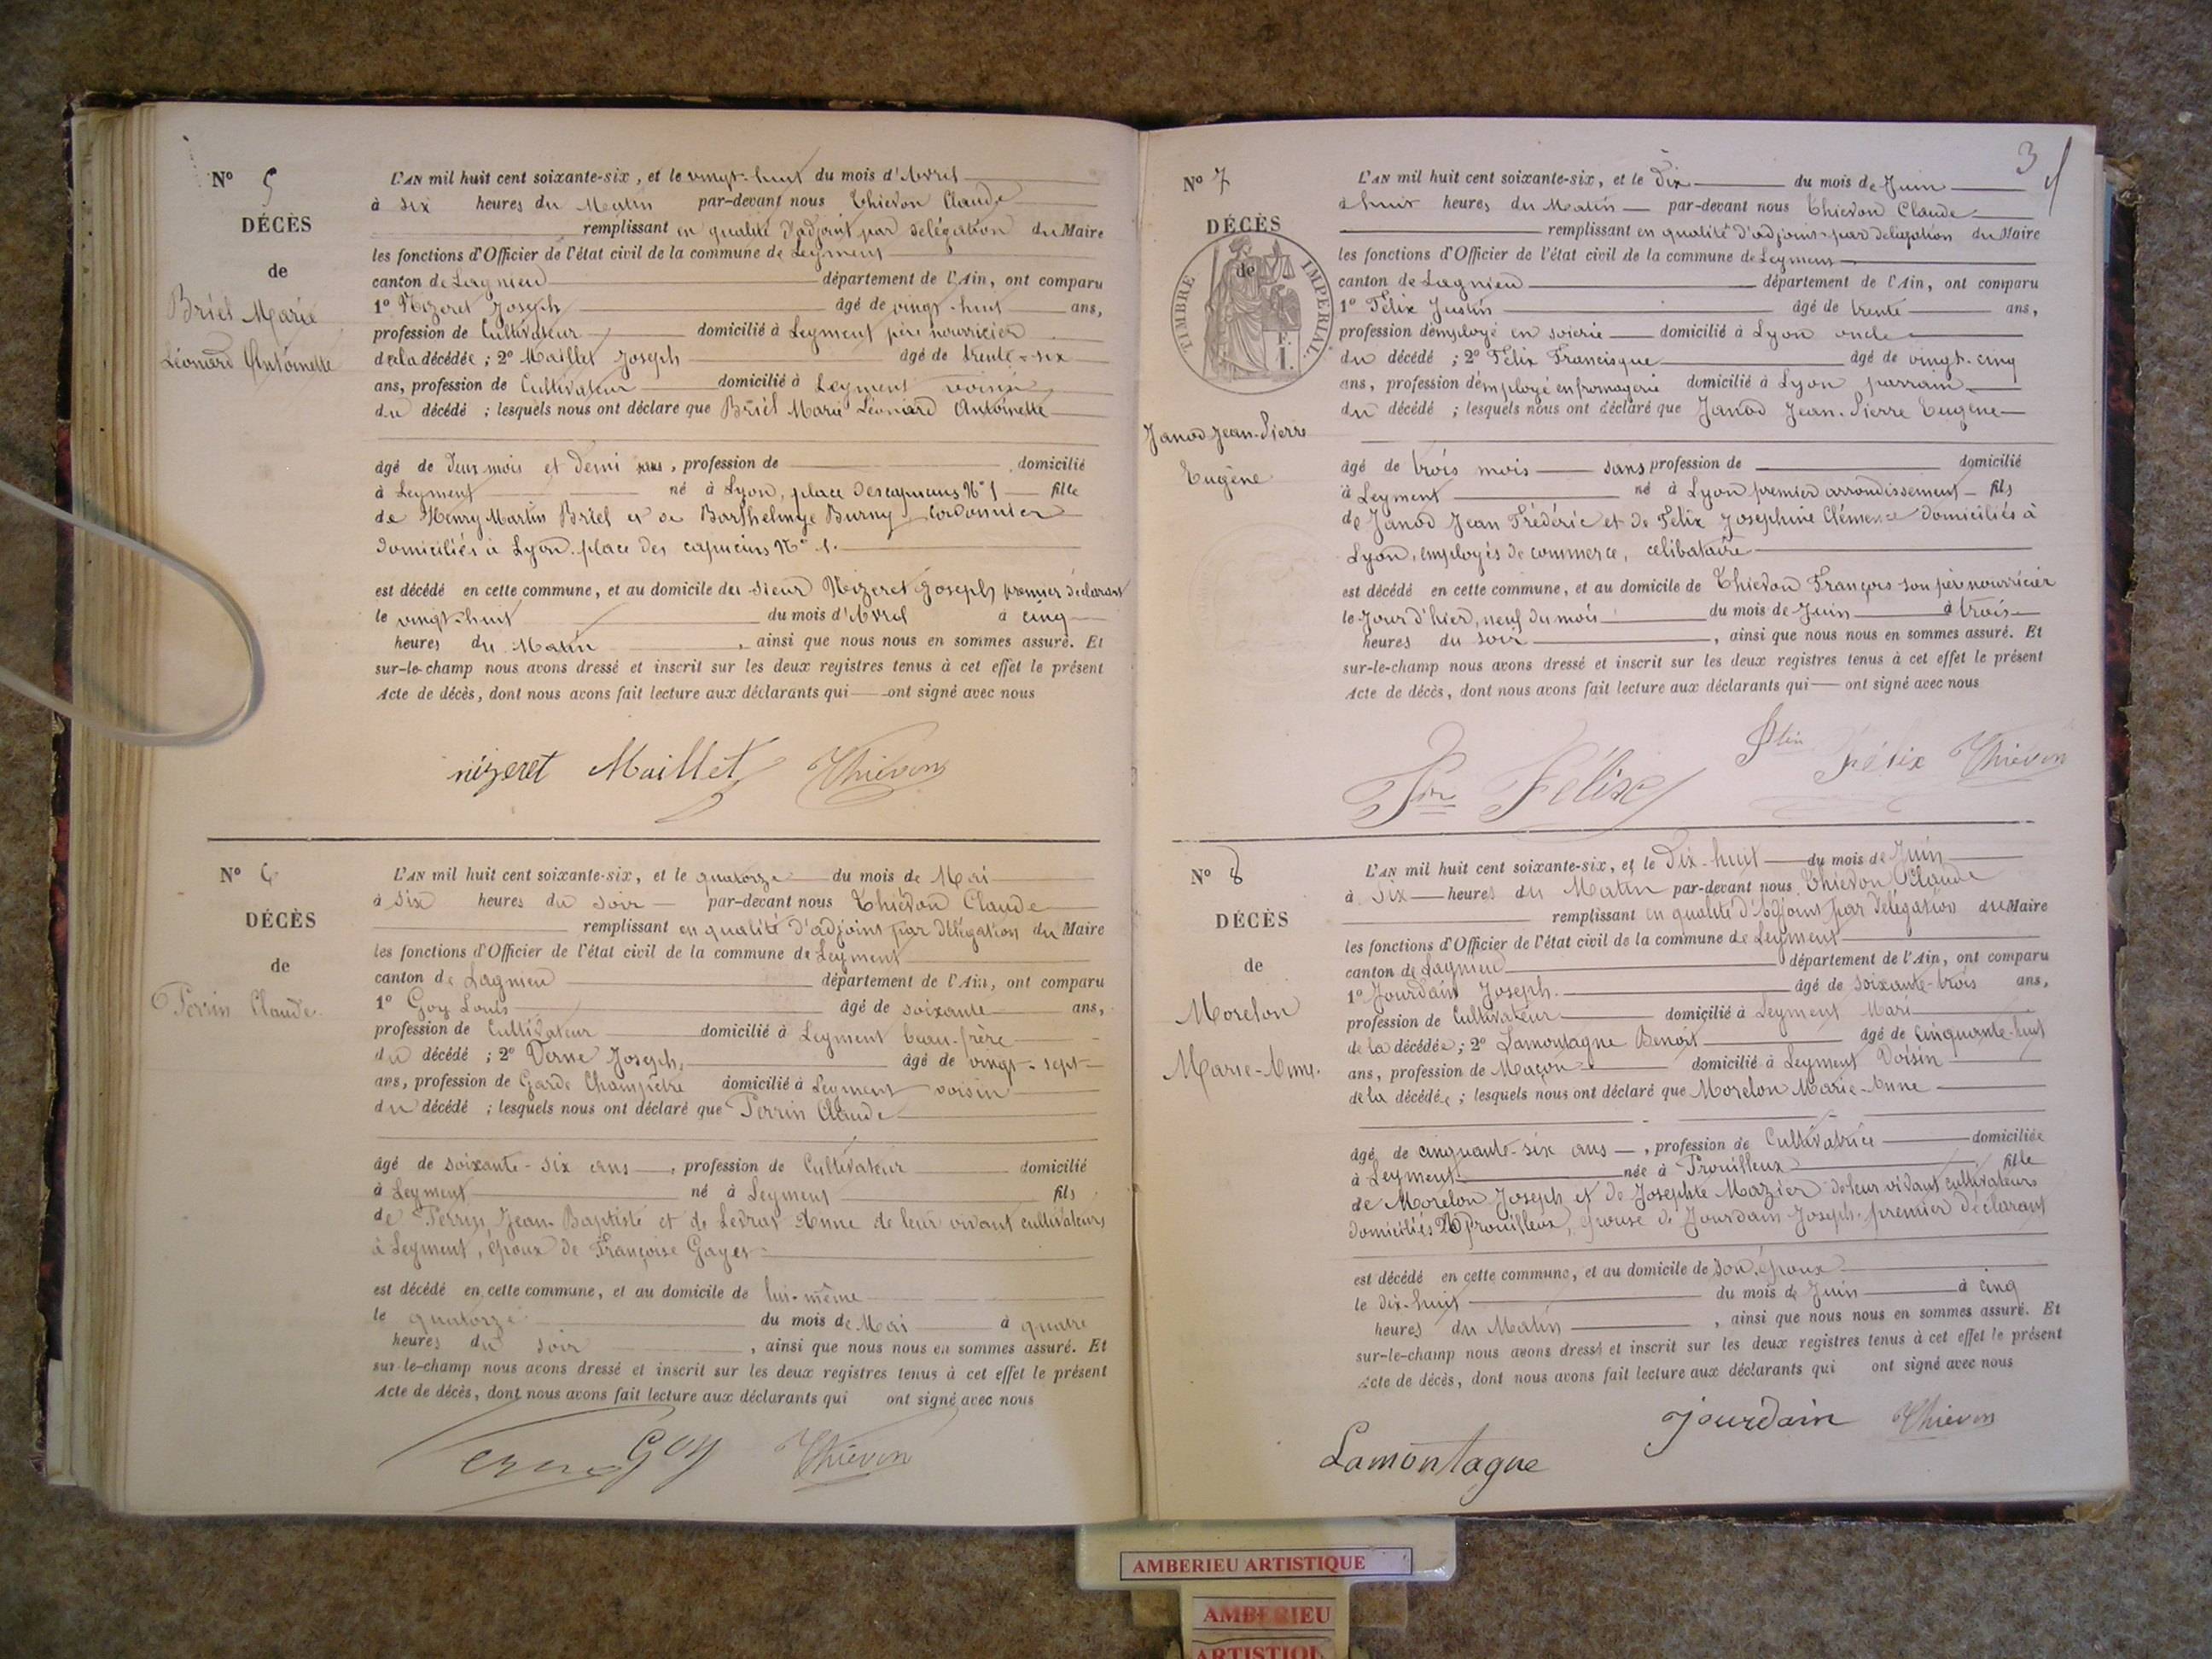 N° 5
DÉCÈS
de
Briel Marie
Léonard Antoinette
L'AN mil huit cent soixante-six, et le vingt-huit du mois d'Avril
à six heures du Matin par-devant nous Thievon Claude
remplissant en qualité d'adjoint par délégation du Maire
les fonctions d'Officier de l'état civil de la commune de Leyment
canton de Lagnieu département de l'Ain, ont comparu
1° Nizeret Joseph âgé de vingt-huit ans,
profession de Cultivateur domicilié à Leyment père nourricier
de la décédée ; 2° Maillet Joseph âgé de trente-six
ans, profession de Cultivateur domicilié à Leyment voisin
du décédé ; lesquels nous ont déclaré que Briel Marie Léonard Antoinette
âgé de deux mois et demi ans, profession de domicilié
à Leyment né à Lyon, place des capucins N° 1 fille
de Henry Martin Briel et de Barthelmye Burny, Cordonnier
domiciliés à Lyon place des capucins N° 1.
est décédé en cette commune, et au domicile du sieur Nizeret Joseph, premier déclarant
le vingt-huit du mois d'Avril à cinq
heures du Matin, ainsi que nous nous en sommes assuré. Et
sur-le-champ nous avons dressé et inscrit sur les deux registres tenus à cet effet le présent
Acte de décès, dont nous avons fait lecture aux déclarants qui ont signé avec nous
nizeret Maillet Thievon
N° 6
DÉCÈS
de
Perrin Claude
L'AN mil huit cent soixante-six, et le quatorze du mois de Mai
à six heures du soir par-devant nous Thiévon Claude
remplissant en qualité d'adjoint par délégation du Maire
les fonctions d'Officier de l'état civil de la commune de Leyment
canton de Lagnieu département de l'Ain, ont comparu
1° Goy Louis âgé de soixante ans,
profession de Cultivateur domicilié à Leyment beau-frère
du décédé ; 2° Verne Joseph, âgé de vingt-sept
ans, profession de Garde Champêtre domicilié à Leyment voisin
du décédé ; lesquels nous ont déclaré que Perrin Claude
âgé de soixante-six ans, profession de Cultivateur domicilié
à Leyment né à Leyment fils
de Perrin Jean-Baptiste et de Levrat Anne de leur vivant cultivateurs
à Leyment, époux de Françoise Gayet
est décédé en cette commune, et au domicile de lui-même
le quatorze du mois de Mai à quatre
heures du soir, ainsi que nous nous en sommes assuré. Et
sur-le-champ nous avons dressé et inscrit sur les deux registres tenus à cet effet le présent
Acte de décès, dont nous avons fait lecture aux déclarants qui ont signé avec nous
Verne Goy Thiévon
3
N° 7
DÉCÈS
de
TIMBRE IMPERIAL
F.
1.
Janod Jean-Pierre
Eugène
L'AN mil huit cent soixante-six, et le Dix du mois de Juin
à huit heures du Matin par-devant nous Thievon Claude
remplissant en qualité d'adjoint par délégation du Maire
les fonctions d'Officier de l'état civil de la commune de Leyment
canton de Lagnieu département de l'Ain, ont comparu
1° Félix Justin âgé de trente ans,
profession d'employé en soierie domicilié à Lyon oncle
du décédé ; 2° Félix Francisque âgé de vingt-cinq
ans, profession d'employé en fromagerie domicilié à Lyon parrain
du décédé ; lesquels nous ont déclaré que Janod Jean-Pierre Eugène
âgé de trois mois sans profession de domicilié
à Leyment né à Lyon premier arrondissement fils
de Janod Jean Frédéric et de Felix Joséphine Clémence domiciliés à
Lyon, employés de commerce, celibataire
est décédé en cette commune, et au domicile de Thievon François son père nourricier
le Jour d'hier, neuf du mois du mois de Juin à trois
heures du soir, ainsi que nous nous en sommes assuré. Et
sur-le-champ nous avons dressé et inscrit sur les deux registres tenus à cet effet le présent
Acte de décès, dont nous avons fait lecture aux déclarants qui ont signé avec nous
Félix Félix Thiévon
N° 8
DÉCÈS
de
Morelon
Marie-Anne.
L'AN mil huit cent soixante-six, et le Dix-huit du mois de Juin
à Six heures du Matin par-devant nous Thievon Claude
remplissant en qualité d'Adjoint par délégation du Maire
les fonctions d'Officier de l'état civil de la commune de Leyment
canton de Lagnieu département de l'Ain, ont comparu
1° Jourdain Joseph. âgé de soixante-trois ans,
profession de Cultivateur domicilié à Leyment Mari
de la décédée ; 2° Lamontagne Benoît âgé de Cinquante-huit
ans, profession de Maçon domicilié à Leyment Voisin
de la décédée ; lesquels nous ont déclaré que Morelon Marie-Anne
âgé de cinquante-six ans, profession de Cultivatrice domiciliée
à Leyment née à Prouilleux fille
de Morelon Joseph et de Josephte Mazier de leur vivant cultivateurs
domiciliés à Prouilleux, épouse de Jourdain Joseph premier déclarant
est décédé en cette commune, et au domicile de son époux
le dix-huit du mois de Juin à cinq
heures du Matin, ainsi que nous nous en sommes assuré. Et
sur-le-champ nous avons dressé et inscrit sur les deux registres tenus à cet effet le présent
Acte de décès, dont nous avons fait lecture aux déclarants qui ont signé avec nous
Jourdain Thievon
Lamontagne
AMBERIEU ARTISTIQUE
AMBERIEU
ARTISTIQU